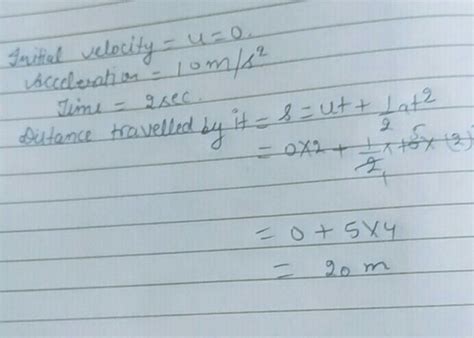 Initial velocity = u = 0.
Acceleration = 10 m/s²
Time = 2 sec.
Distance travelled by it = s = ut + 1/2 at²
= 0×2 + 1/2 × 10 × (2)
5
1
= 0 + 5×4
= 20 m